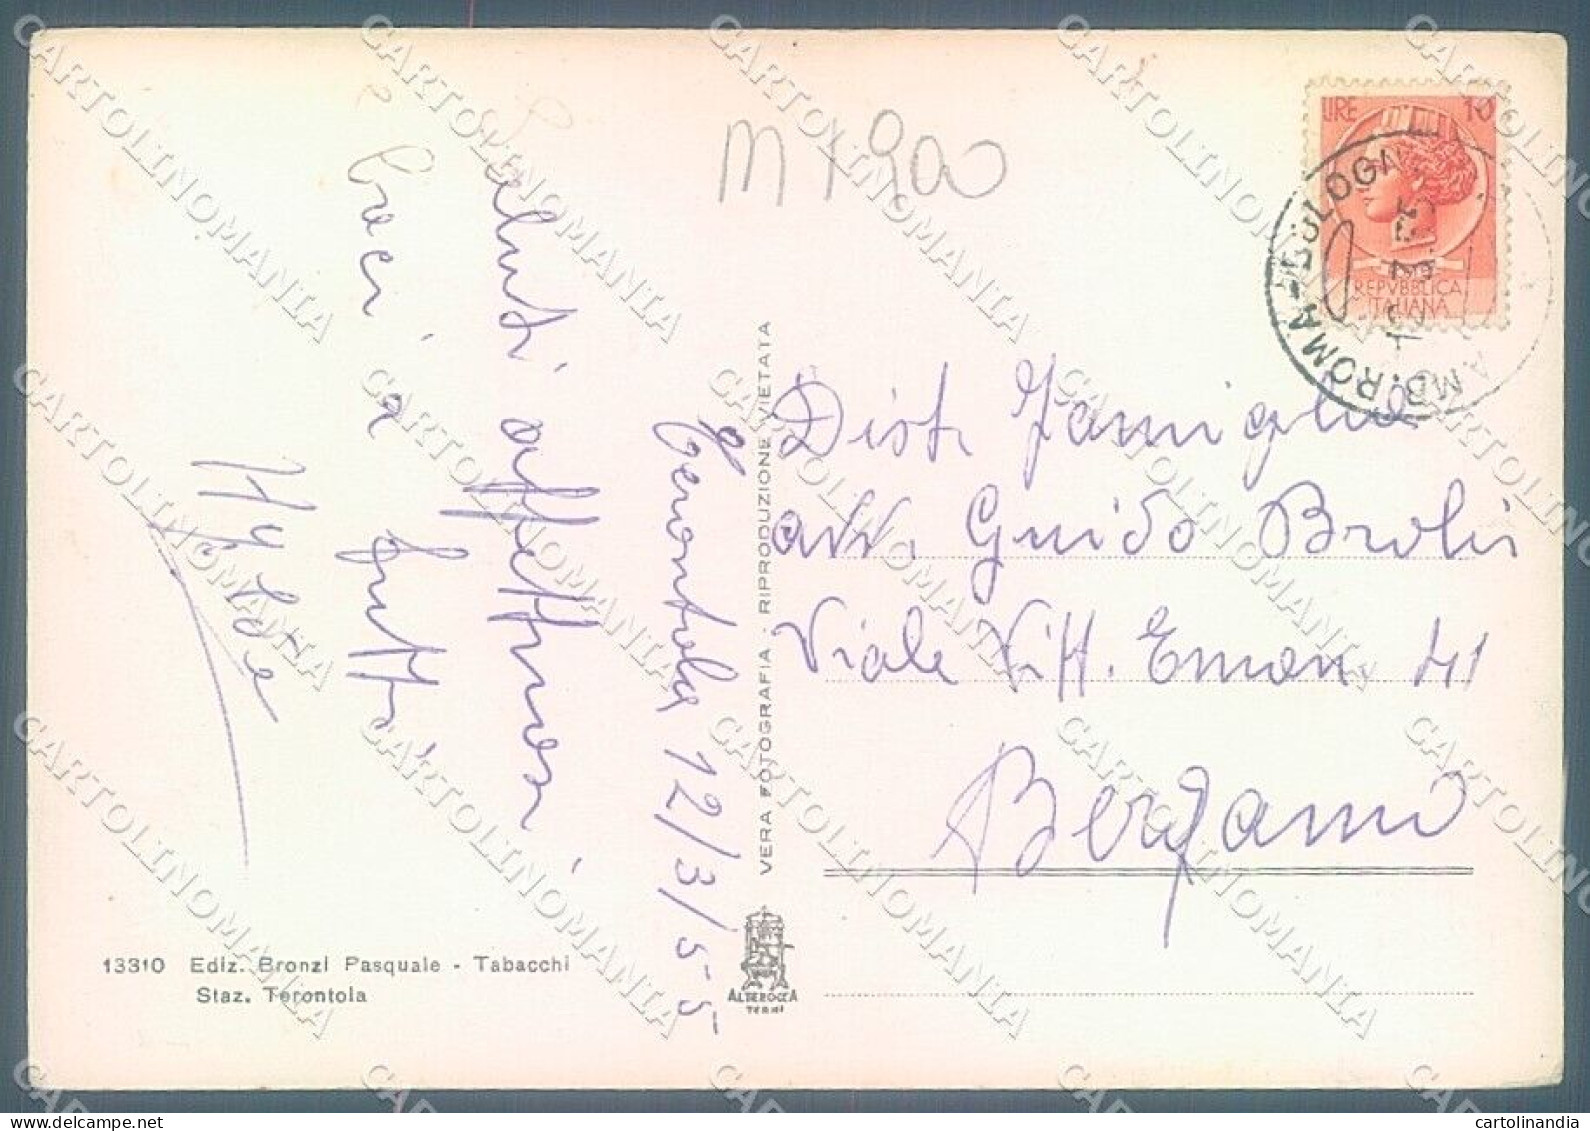 M 1900
LIRE 10
REPVBBLICA
ITALIANA
AMB. ROMA-BOLOGNA
Terontola 12/3/55
Saluti affettuosi
Baci a tutti
Dist. Famiglia
avv. Guido Brolis
Viale Vitt. Eman 41
Bergamo
VERA FOTOGRAFIA - RIPRODUZIONE VIETATA
13310 Ediz. Bronzi Pasquale - Tabacchi
Staz. Terontola
ALTEROCCA
TERNI
CARTOLINOMANIA
cartolinandia